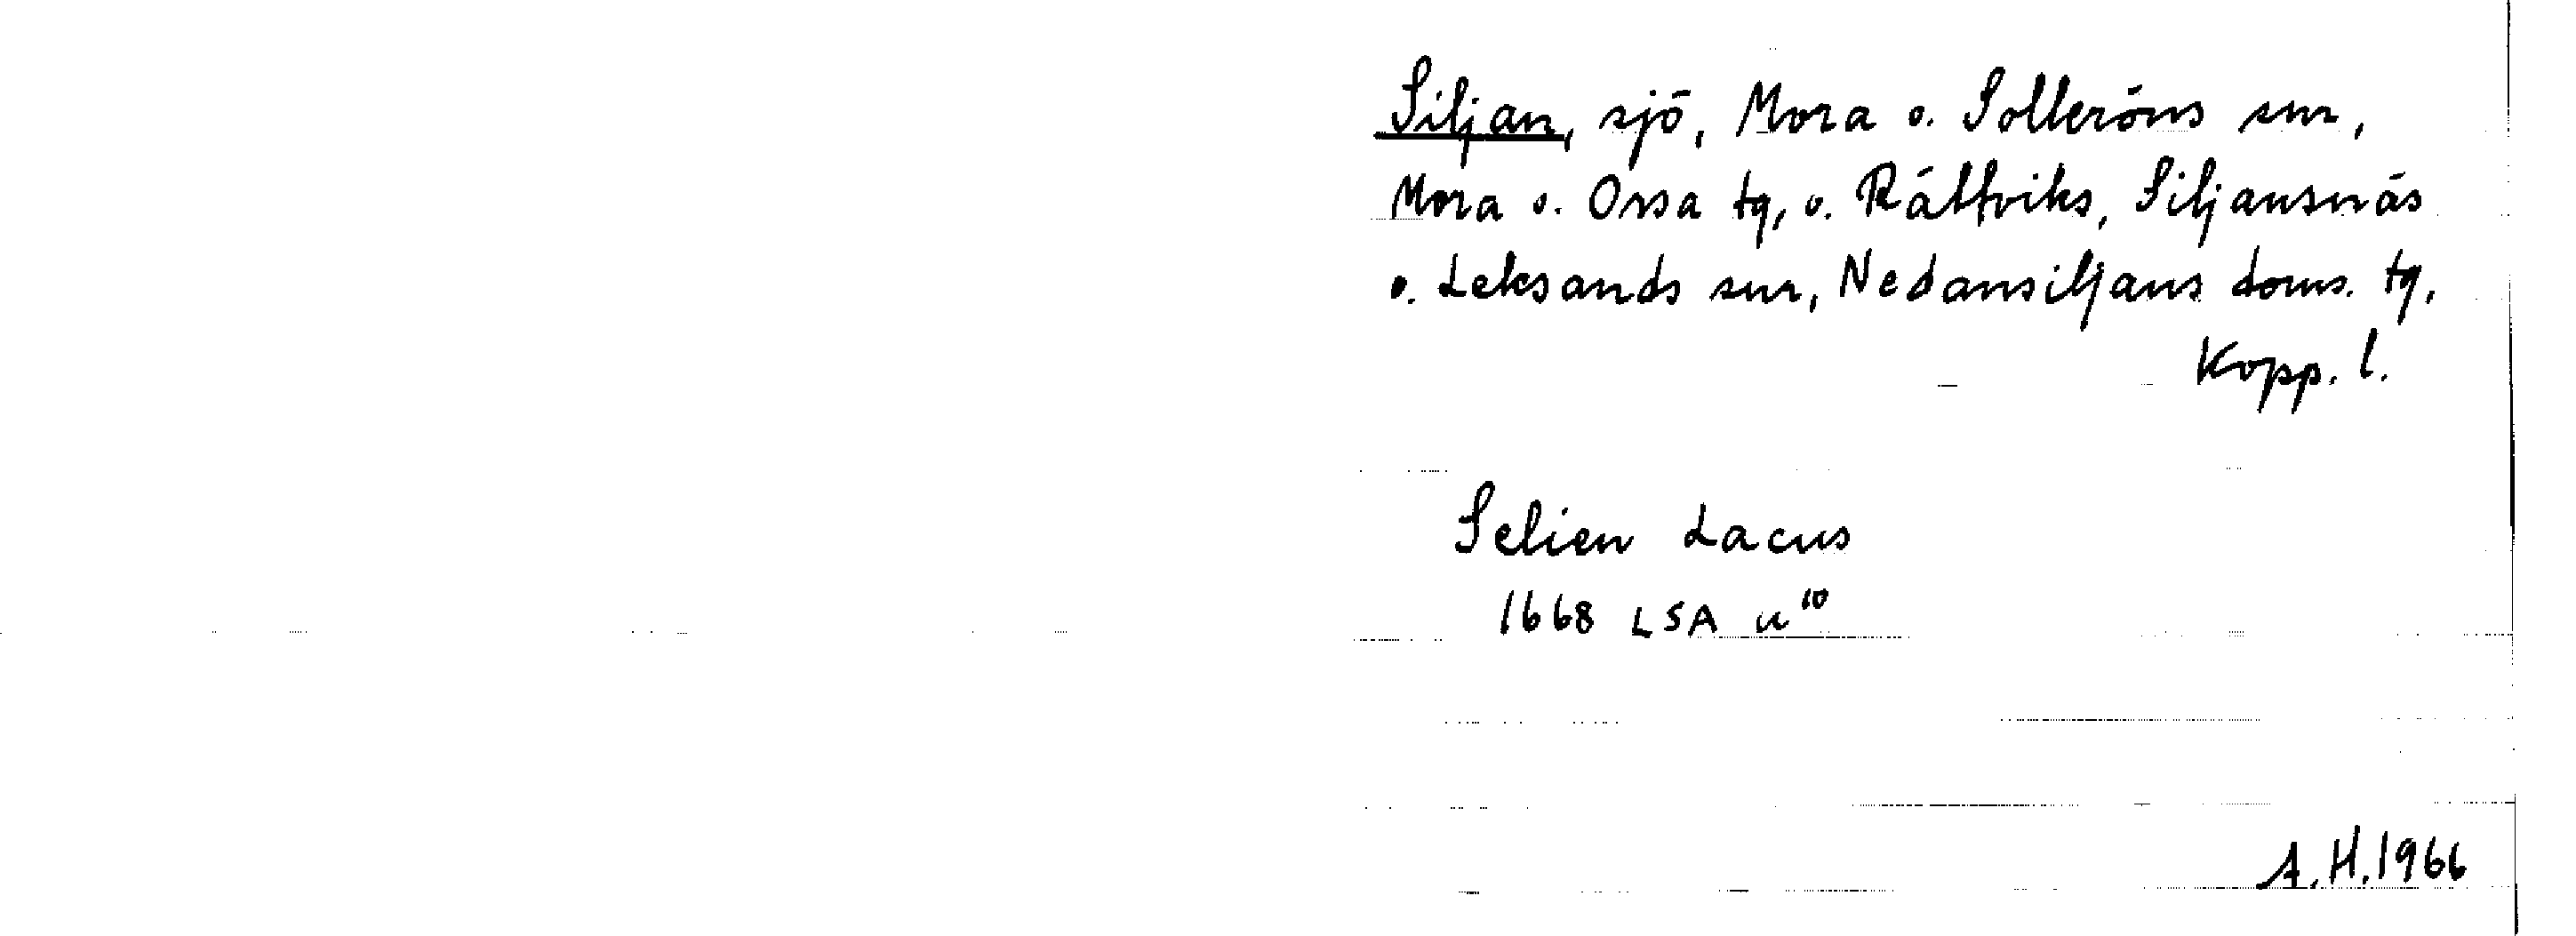 Siljan, sjö, Mora o. Solleröns snr,
Mora o. Orsa tg, o. Rättviks, Siljansnäs
o. Leksands snr, Nedansiljans doms. tg,
Kopp. l.
Selien Lacus
1668 LSA u¹⁰
A.H.1966